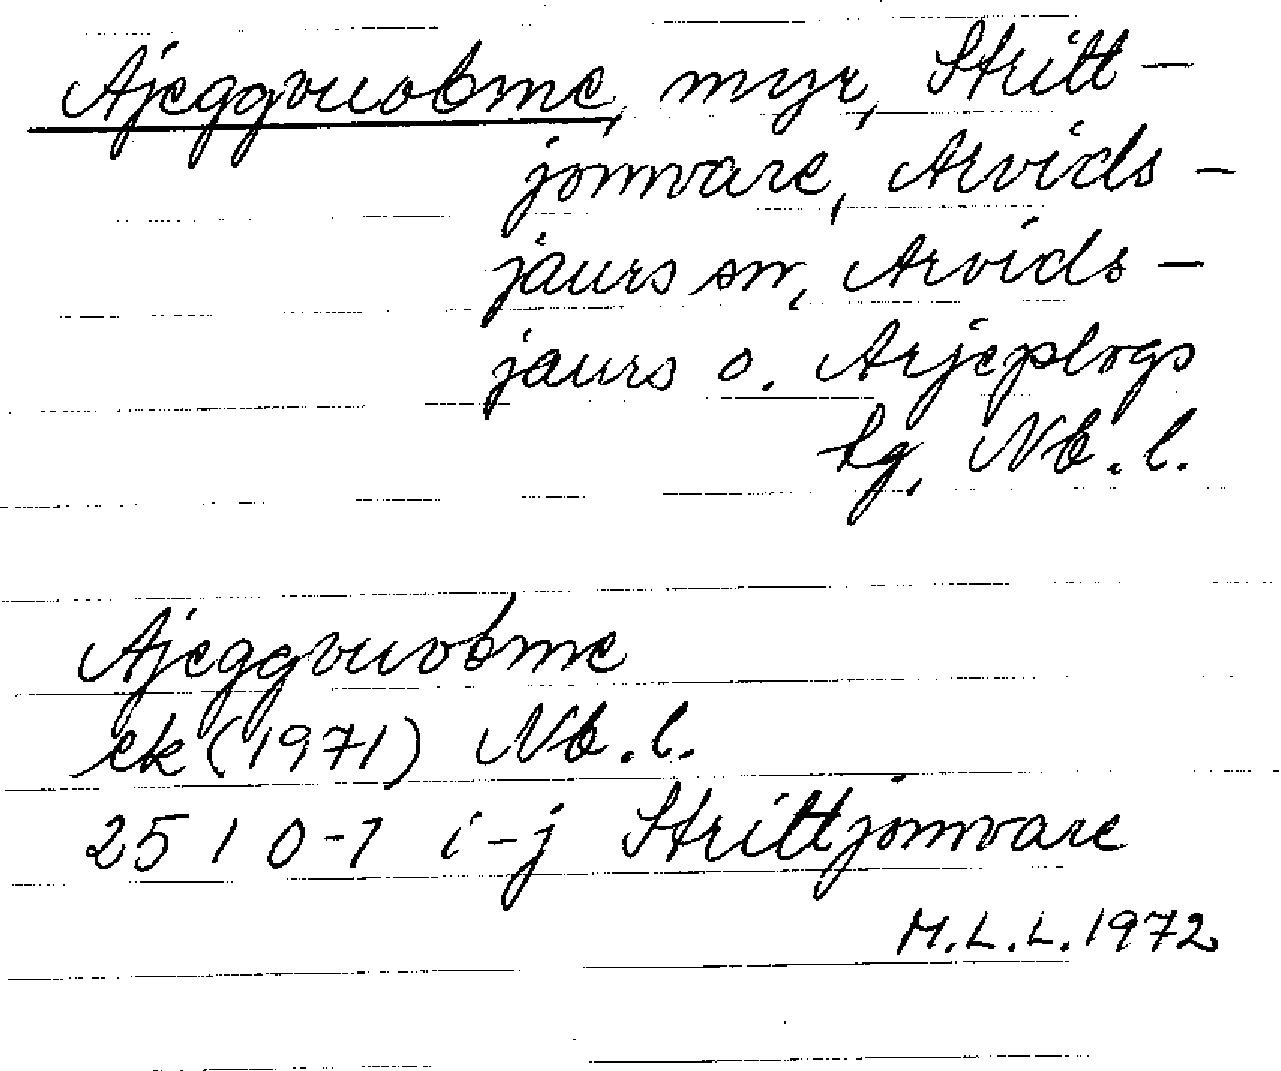 Ajeggvuobme, myr, Stritt-
jomvare, Arvids-
jaurs sn, Arvids-
jaurs o. Arjeplogs
tg, Nb. l.
Ajeggvuobme
ek (1971) Nb. l.
25 I 0-1 i-j Strittjomvare
M.L.L. 1972